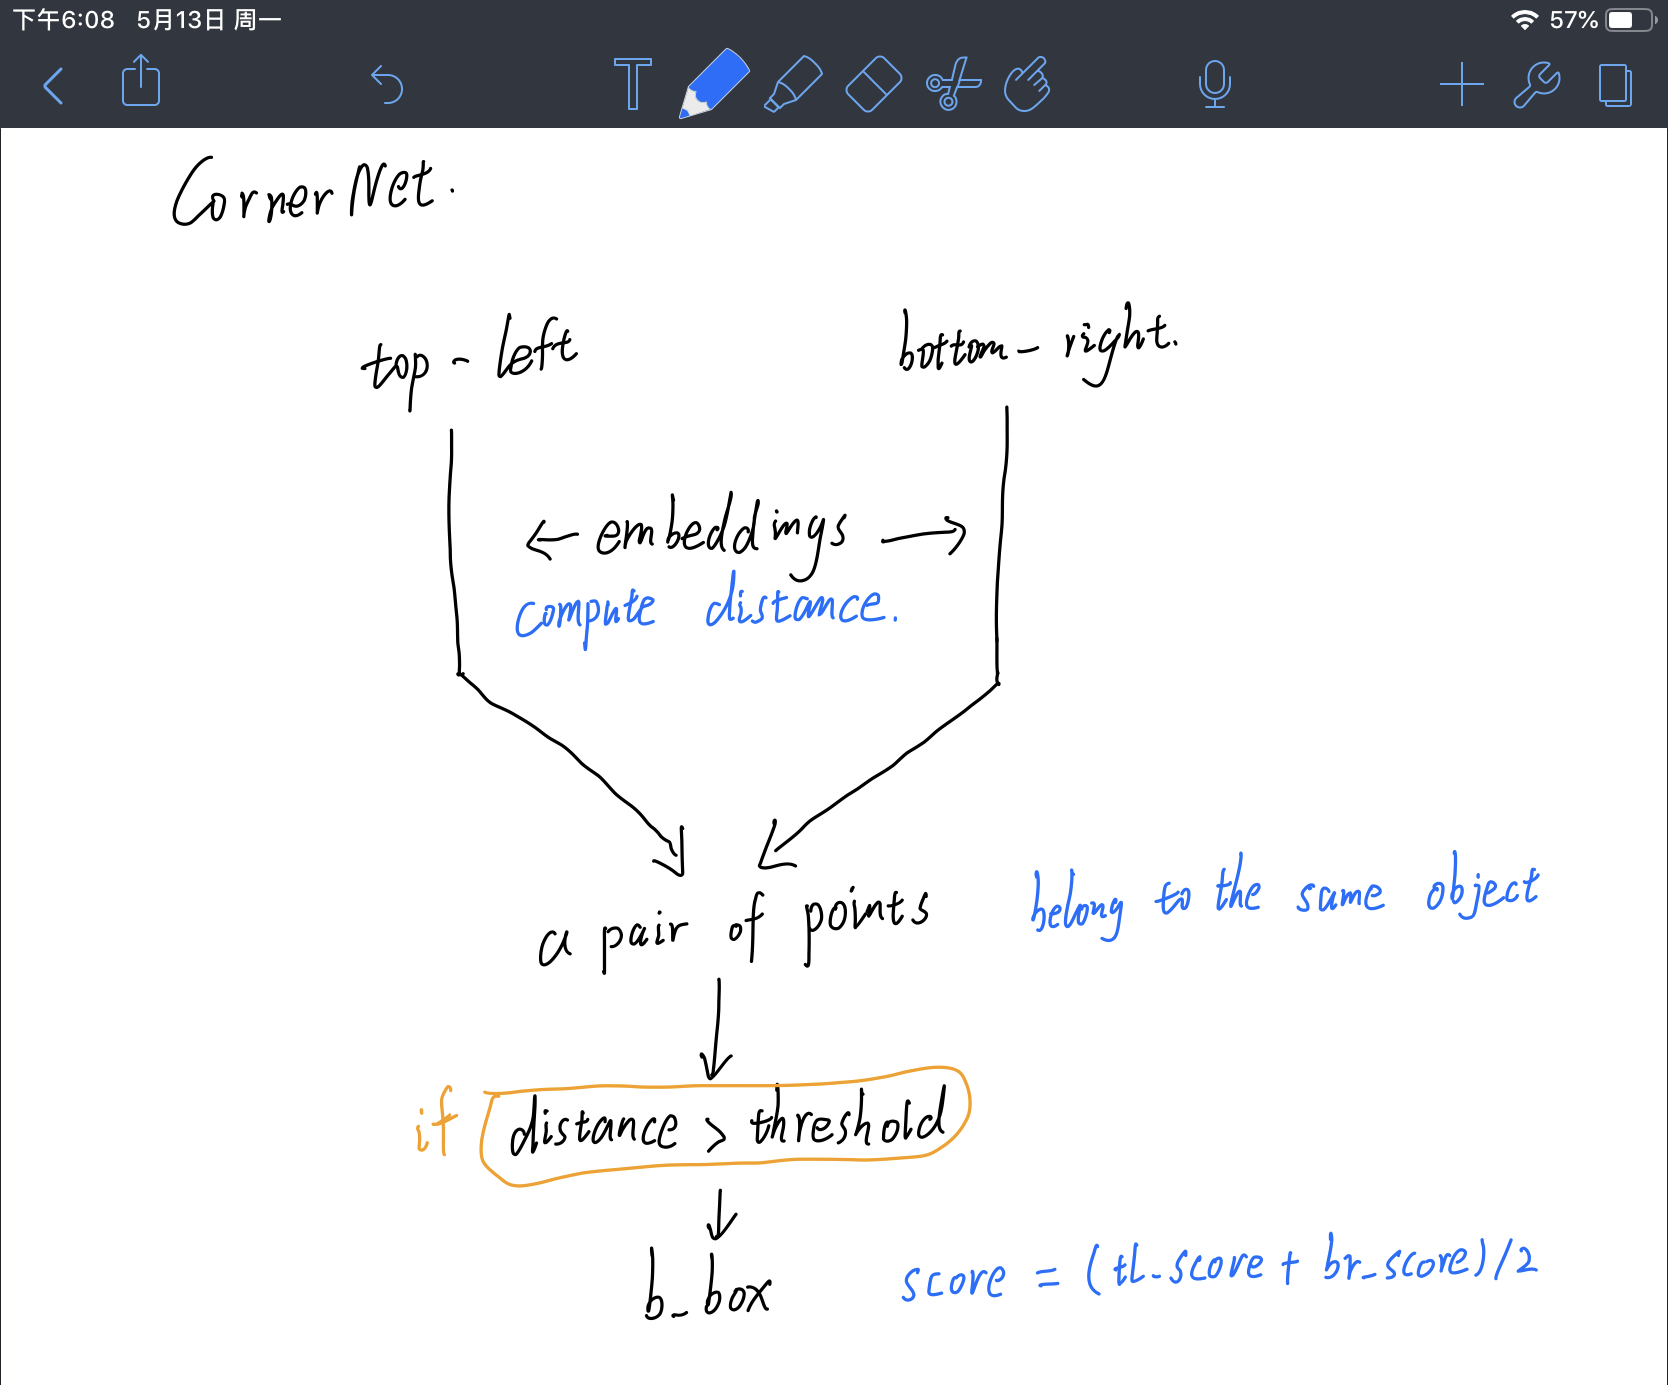 下午6:08 5月13日 周一 57%
T
CornerNet.
top-left bottom-right.
← embeddings →
compute distance.
a pair of points belong to the same object
if distance > threshold
b_box score = (tl_score + br_score)/2